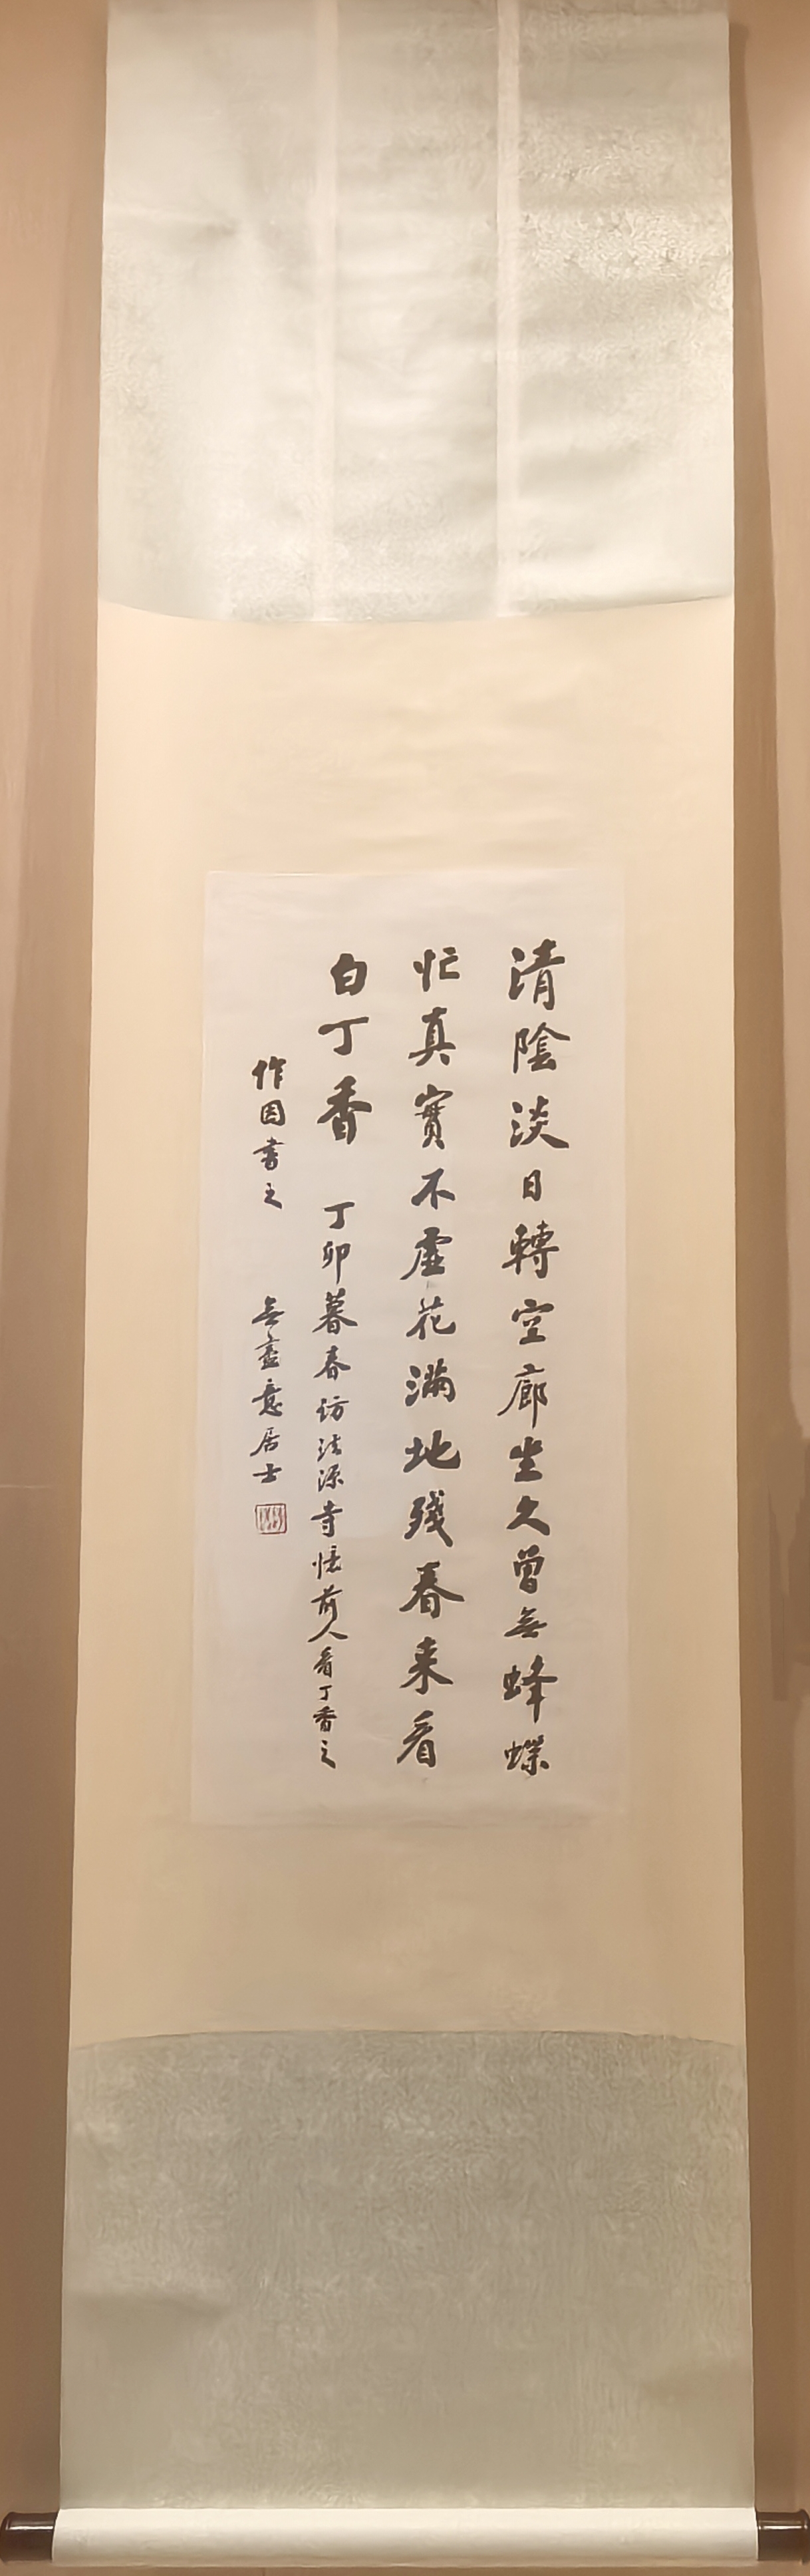 清陰淡日轉空廊坐久曾無蜂蝶
忙真實不虛花滿地殘春來看
白丁香 丁卯暮春訪法源寺憶前人看丁香之
作因書之 無盡意居士